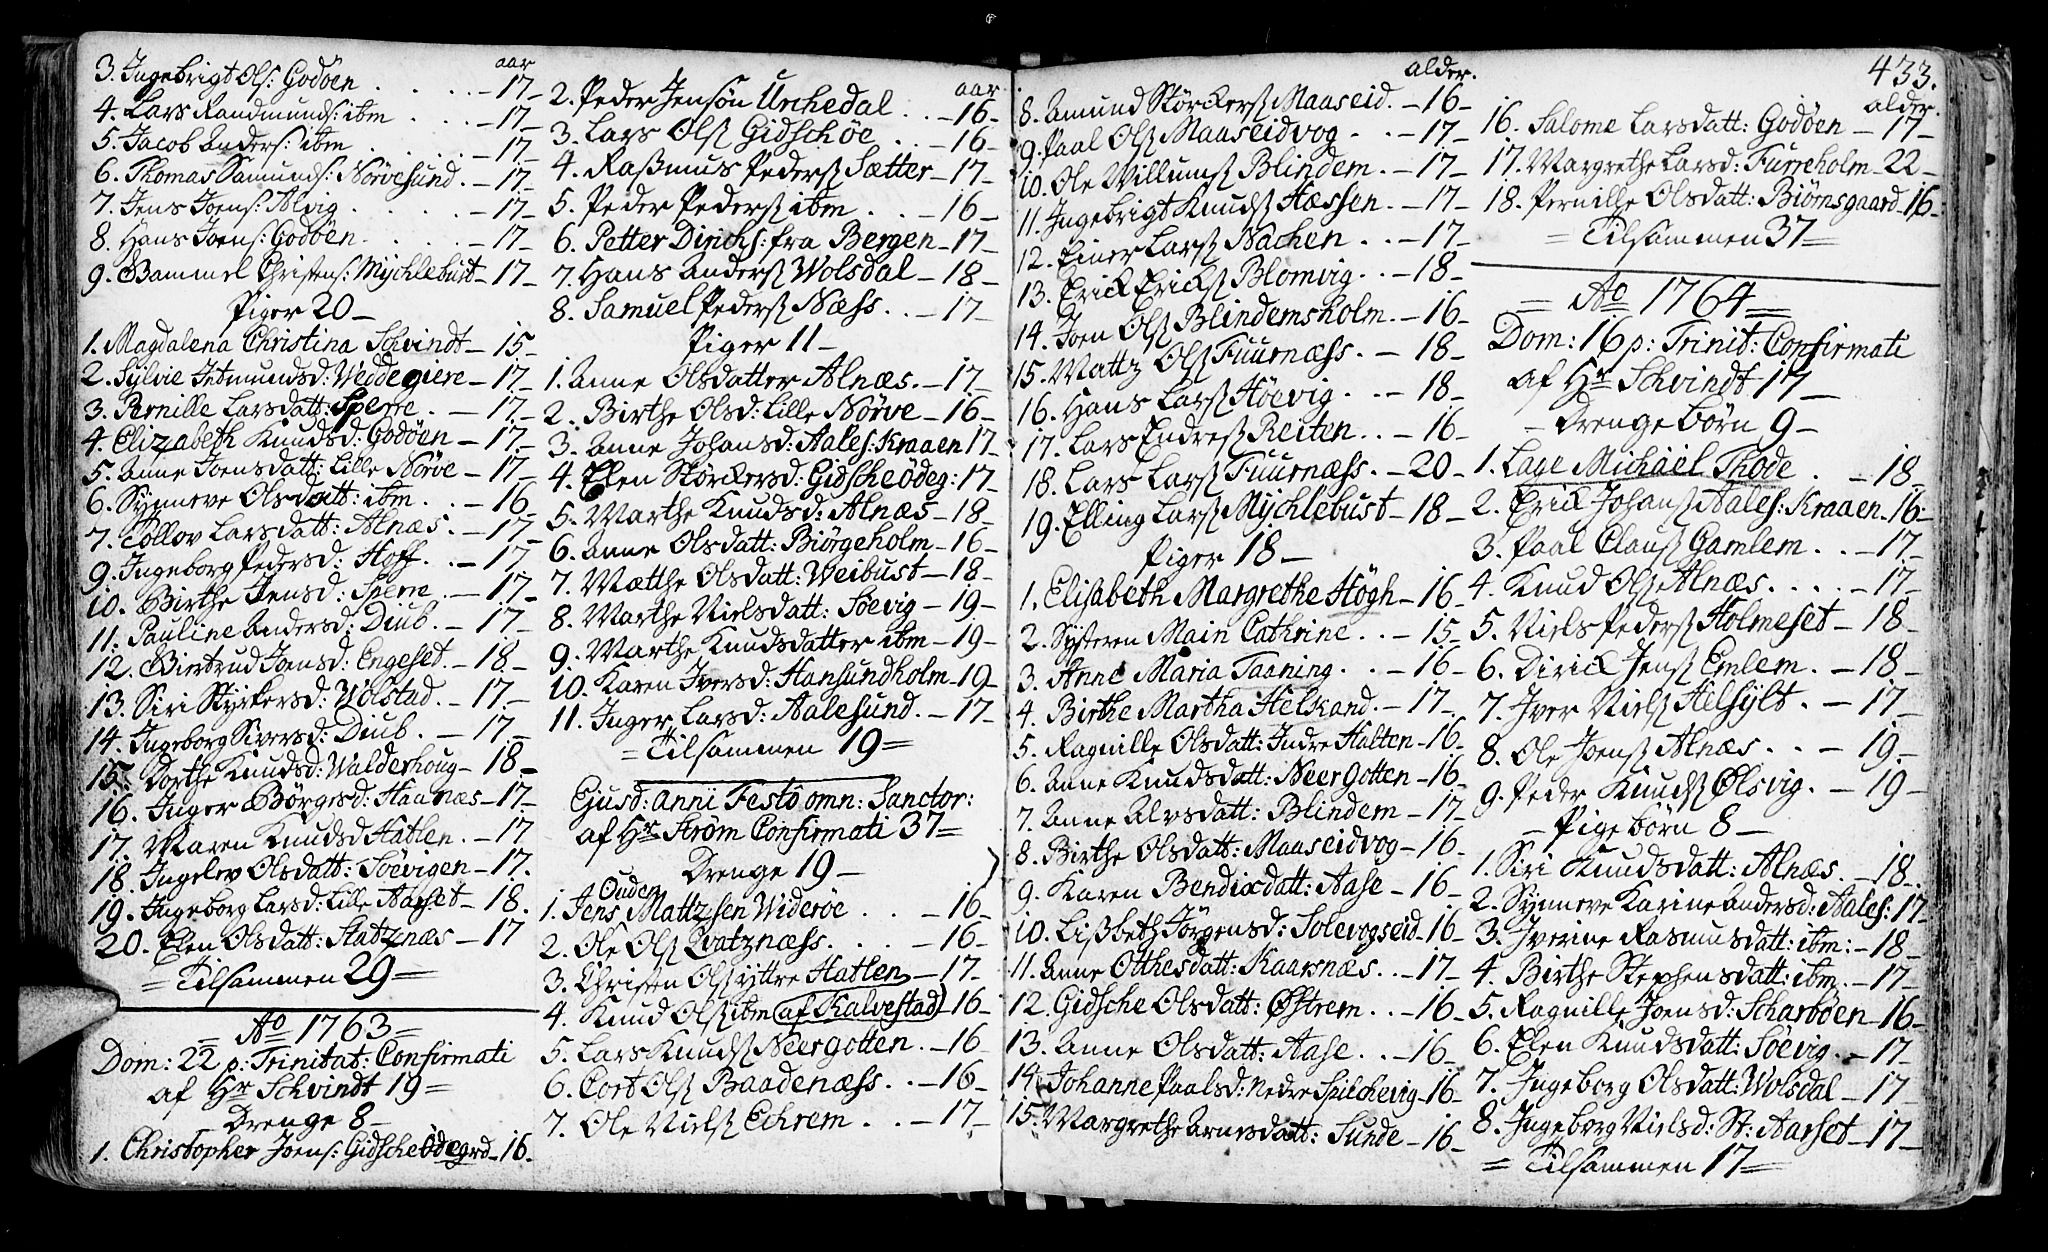 aar
3. Ingebrigt Ols: Godöen . . . . - 17 -
4. Lars Randmunds: ibm . . . - 17 -
5. Jacob Anders: ibm . . . . . - 17 -
6. Thomas Samunds: Nörvesund. - 17 -
7. Jens Joens: Alvig . . . . . - 17 -
8. Hans Joens: Godöen . . . . - 17 -
9. Gammel Christens: Mychlebust - 17 -
Piger 20 -
1. Magdalena Christina Schvindt - 15 -
2. Sylvie Jetmundsd: Weddegiere - 17 -
3. Pernille Larsdatt: Sperre . - 17 -
4. Elizabeth Knudsd: Godöen - 17 -
5. Anne Joensdatt: Lille Nörve - 17 -
6. Synneve Olsdatt: ibm . . - 16 -
7. Tollov Larsdatt: Alnæs . - 17 -
9. Ingeborg Pedersd: Hoff . . - 17
10. Birthe Jensd: Sperre . - 17 -
11. Pauline Andersd: Diub . - 17 -
12. Giertrud Joensd: Engeset . - 18 -
13. Siri Styrkersd: Wolstad . - 17 -
14. Ingeborg Siversd: Diub . - 17 -
15. Dorthe Knudsd: Walderhoug - 18 -
16. Inger Börgesd: Haanæs - 17 -
17. Maren Knudsd Hatlen . - 17
18. Ingelev Olsdatt: Söevigen - 17.
19. Ingeborg Larsd: Lille Aarset - 18.
20. Elen Olsdatt: Slatznæs - 17
= Tilsammen 29 =
= Ao 1763 =
Dom: 22 p: Trinitat: Confirmati
af Hr Schvindt 19 =
Drenge 8 -
1. Christopher Joens: Gidscheödegrd - 16 -
aar
2. Peder Jensön Urchedal . . - 16 -
3. Lars Ols Gidschöe . . - 16 -
4. Rasmus Peders Sætter - 17 -
5. Peder Peders ibm . . - 16 -
6. Petter Dirichs: fra Bergen - 17 -
7. Hans Anders Wolsdal - 18 -
8. Samuel Peders Næss . . - 17 -
Piger 11 -
1. Anne Olsdatter Alnæs. - 17 -
2. Birthe Olsd: Lille Nörve - 16 -
3. Anne Johansd: Aales: Kraaen 17 -
4. Elen Störckersd: Gidscheödeg: 17 -
5. Marthe Knudsd: Alnæs - 18 -
6. Anne Olsdatt: Biörgeholm - 16 -
7. Mætthe Olsdatt: Weibust - 18 -
8. Marthe Nielsdatt: Söevig - 19 -
9. Marthe Knudsdatter ibm - 19 -
10. Karen Iversd: Hansundholm - 19 -
11. Inger Larsd: Aalesund. - 17 -
= Tilsammen 19 =
Ejusd: anni Festo omn: Sanctor:
af Hr Ström Confirmati 37 =
Drenge 19 -
Ouden
1. Jens Mattzsen Wideröe . . . - 16 -
2. Ole Ols Qvatznæss. . . . - 16 -
3. Christen Ols yttre Hatlen - 17 -
4. Knud Ols ibm (af Kalvestad) - 16 -
5. Lars Knuds Neergotten . - 16 -
6. Cort Ols Baadenæss . . - 16 -
7. Ole Niels Echrem . . - 17 -
alder.
8. Amund Störckers Maaseid. - 16 -
9. Paal Ols Maaseidvog . . - 17 -
10. Ole Willums Blindem . - 17 -
11. Ingebrigt Knuds Hæssen . - 17 -
12. Einer Lars Nachen . . - 17 -
13. Erick Ericks Blomvig . . - 18 -
14. Joen Ols Blindemsholm. - 16 -
15. Mattz Ols Fuurnæss. - 18 -
16. Hans Lars Höevig . . - 18 -
17. Lars Endres Reiten . . - 16 -
18. Lars Lars Fuurnæss. - 20 -
19. Elling Lars Mychlebust - 18 -
Piger 18 -
1. Elisabeth Margrethe Högh - 16 -
2. Systeren Main Cathrine . . - 15 -
3. Anne Maria Taaning . . - 16 -
4. Birthe Martha Helskand . - 17 -
5. Ragnille Olsdatt: Indre Hatten - 16 -
6. Anne Knudsdatt: Neergotten - 16 -
7. Anne Alvsdatt: Blindem - 17 -
8. Birthe Olsdatt: Maaseidvog - 16 -
9. Karen Bendixdatt: Aase - 16 -
10. Lisbeth Jörgensd: Solevogseid - 16 -
11. Anne Otthesdatt: Kaarsnæs . - 17 -
12. Gidsche Olsdatt: Östrem . . - 16 -
13. Anne Olsdatt: Aase . . - 16 -
14. Johanne Paalsd: Nedre Spilchevig - 16 -
15. Margrethe Arnesdatt: Sunde - 16 -
433.
alder.
16. Salome Larsdatt: Godöen - 17 -
17. Margrethe Larsd: Furreholm - 22 -
18. Pernille Olsdatt: Biörnsgaard - 16 -
= Tilsammen 37 =
= Ao 1764 =
Dom: 16 p: Trinit: Confirmati
af Hr Schvindt 17 -
- Drenge börn 9 -
1. Lage Michael Thode . - 18 -
2. Erick Johans Aales: Kraaen - 16 -
3. Paal Claus Gamlem . . - 17 -
4. Knud Ols Alnæs . . . . - 17 -
5. Niels Peders Holmeset - 18 -
6. Dirick Jens Emlem . - 18 -
7. Iver Niels Helsylt . - 17 -
8. Ole Joens Alnæs . . . - 19 -
9. Peder Knuds Ölsvig . - 19 -
- Pige börn 8 -
1. Siri Knudsdatt: Alnæs . - 18 -
2. Synneve Karine Andersd: Aales: 17 -
3. Iverine Rasmusdatt: ibm: - 18 -
4. Birthe Stephensdatt: ibm . - 17 -
5. Ragnille Joensd: Scharböen - 16 -
6. Elen Knudsdatt: Söevig . - 17 -
7. Ingeborg Olsdatt: Wolsdal - 17 -
8. Ingeborg Nielsd: St: Aarset - 17 -
= Tilsammen 17 =